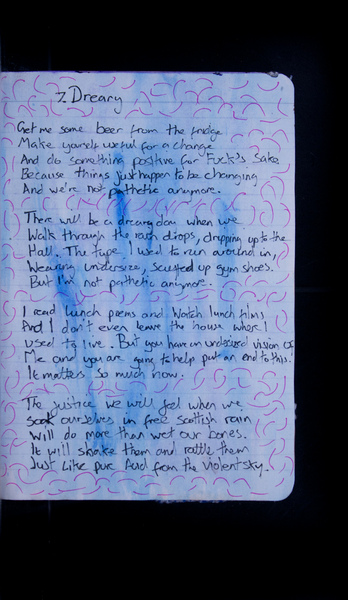 7. Dreary
Get me some beer from the fridge
Make yourself useful for a change
And do something positive for Fuck's sake
Because things just happen to be changing
And we're not pathetic anymore.
There will be a dreary day when we
Walk through the rain drops, dripping up to the
Hall. The type I used to run around in,
Wearing undersize, scuffed up gym shoes.
But I'm not pathetic anymore.
I read lunch poems and watch lunch films
And I don't even leave the house where I
used to live. But you have an undesired vision of
Me and you are going to help put an end to this.
It matters so much now.
The justice we will feel when we
soak ourselves in free scottish rain
will do more than wet our bones.
It will shake them and rattle them
Just Like pure Acid from the violent sky.